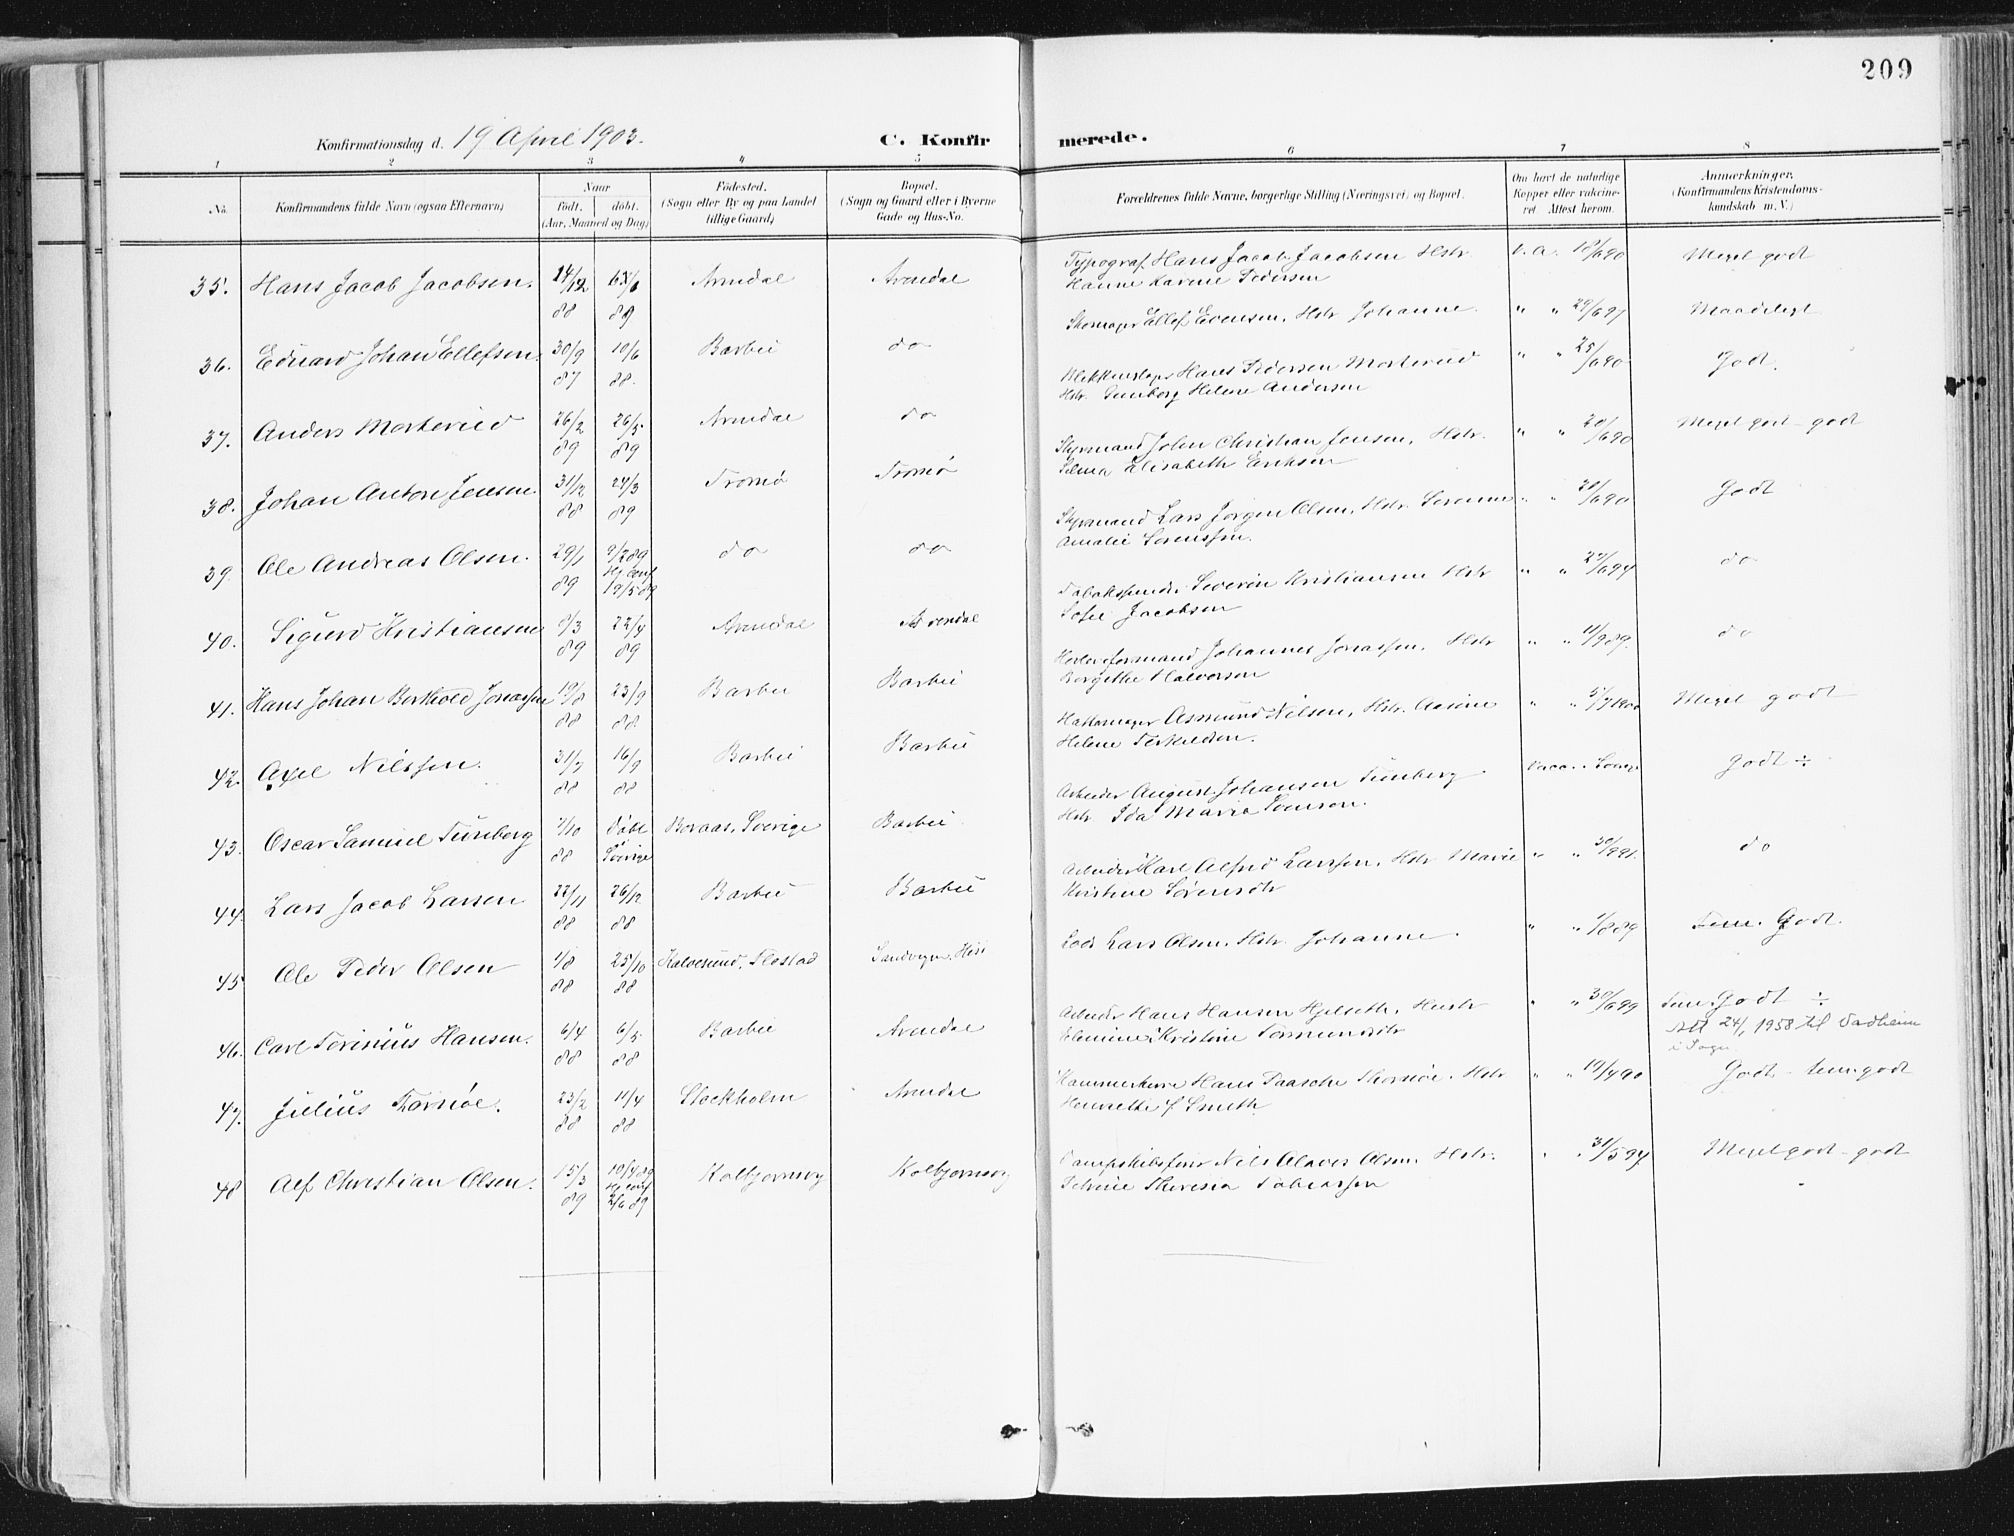 209
Konfirmationsdag d. 19 April 1903.
C. Konfirmerede.
1 2 3 4 5 6 7 8
No. Konfirmandens fulde Navn (ogsaa Efternavn) Naar født. døbt. (Aar, Maaned og Dag) Fødested. (Sogn eller By og paa Landet tillige Gaard) Bopæl. (Sogn og Gaard eller i Byerne Gade og Hus-No.) Forældrenes fulde Navne, borgerlige Stilling (Næringsvei) og Bopæl. Om havt de naturlige Kopper eller vakcineret. Attest herom. Anmerkninger. (Konfirmandens Kristendomskundskab m. V.)
35. Hans Jacob Jacobsen. 14/12 88 Arendal Arendal Typograf Hans Jacob Jacobsen Hstr. v. a. 18/6 90 Meget godt
Hanne Karine Pedersen
36. Eduard Johan Ellefsen. 30/9 87 10/6 88. Barbu do Skomager Ellef Evensen, Hstr Johanne. " " 29/6 97 Maadeligt
37. Anders Mørterud 26/2 89 26/5 89 Arendal do Hans Pedersen Mørterud " " 25/6 90 Godt.
Hstr. Gunborg Helene Andersen
38. Johan Anton Jensen 31/12 88 24/3 89 Tromø Tromø Styrmand John Christian Jensen, Hstr. " " 20/6 90 Meget godt - godt
Selma Elisabeth Eriksen
39. Ole Andreas Olsen. 29/1 89 9/2 89 Hj. conf 19/5 89 do do Styrmand Lars Jørgen Olsen, Hstr. Severine " " 20/6 90 Godt
Amalie Sørenssen.
40. Sigurd Kristiansen 9/3 89 22/4 89 Arendal Arendal Severin Kristiansen Hstr " " 27/6 94 do
Sofie Jacobsen
41. Hans Johan Berthold Jonassen 19/8 88 23/9 88. Barbu Barbu Johannes Jonassen, Hstr " " 11/9 89. do
Borgithe Halvorsen
42. Axel Nilssen. 31/7 88 16/9 88 Barbu Barbu Hattemager Asmund Nilsen, Hstr. " " 5/7 1900 Meget godt
Helene Terkildsen.
43. Oscar Samuel Tunberg 7/10 88 døbt Sverige Boraas, Sverige Barbu Arbeider August Johansen Tunberg. Vacc. i Sverige Godt ÷
Hstr. Ida Maria Svenson.
44. Lars Jacob Larsen 22/11 88 26/12 88 Barbu Barbu Arbeider Karl Alfred Larssen, Hstr Marie " " 30/9 91. do
Kristine Sørensdtr
45 Ole Peder Olsen 4/8 88 25/10 88 Kalvesund, Flostad Sandvigen, Hisø Lods Lars Olsen, Hstr. Johanne. " " 7/8 89 Tem. Godt.
46. Carl Torinius Hansen. 6/4 88 6/5 88 Barbu Arendal Arbeider Hans Hansen Hjelseth, Hustr " " 30/6 99 Tem. Godt ÷
Kristine Tormundsdtr Att 24/1 1958 til Vadheim i Sogn
47. Julius Thornøe. 23/2 88 11/4 88 Stockholm Arendal Kammerherre Hans Paasche Thornøe. Hstr " " 19/4 90 Godt - tem. godt
Henriette f. Smith
48 Alf Christian Olsen. 15/3 89 10/4 89 Hj conf 2/6 89 Kolbjørnsvg Kolbjørnsvg Nils Olaves Olsen, Hstr. " " 31/5 94 Meget godt - godt
Theresia Tobiassen